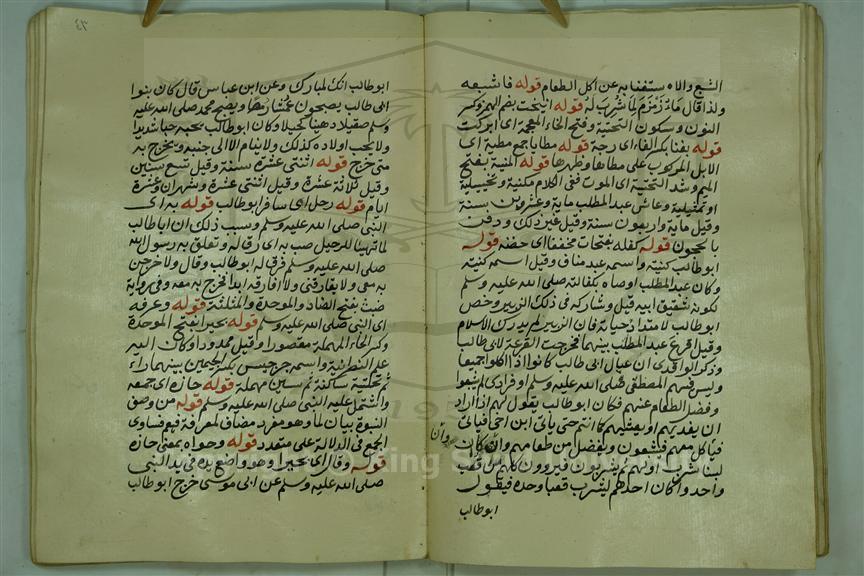 الشبع والاستغنابه عن اكل الطعام قوله فاشبعه
ولذا قال ماء زمزم لما شرب له قوله انيخت بضم الهمز وكسر
النون وسكون التحتية وفتح الخاء المعجمة اى ابركت
قوله بفنا بكسر الفاء اى رحبة قوله مطايا جمع مطية اى
الابل المركوب على مطاها وظهرها قوله المنية بفتح
الميم وشد التحتية اى الموت ففى الكلام مكنية وتخييلية
او تمثيلية وعاش عبد المطلب ماية وعشرين سنة
وقيل ماية واربعون سنة وقيل غير ذلك ودفن
بالحجون قوله كفله بفتحات مخففا اى حضنه قوله
ابو طالب كنيته واسمه عبد مناف وقيل اسمه كنيته
وكان عبد المطلب اوصاه بكفالته صلى الله عليه وسلم
لكونه شقيق ابيه قيل وشاركه فى ذلك الزبير وخص
ابو طالب لامتداد حياته فان الزبير لم يدرك الاسلام
وقيل اقرع عبد المطلب بينهما فخرجت القرعة لابى طالب
وذكر الواقدى ان عيال ابى طالب كانوا اذا اكلوا جميعا
وليس فيهم المصطفى صلى الله عليه وسلم او فرادى لم يشبعوا
وفضل الطعام عنهم فكان ابو طالب يقول لهم اذا اراد
ان يغديهم او يعشيهم كما انتم حتى ياتى ابن اخى فياتى
فياكل معهم فيشبعون ويفضل من طعامهم وان كان
لبنا شرب اولهم ثم يشربون فيروون كلهم من قعب
واحد وان كان احدهم ليشرب قعبا وحده فيقول
ابو طالب
٤٣
ابو طالب انك لمبارك وعن ابن عباس قال كان بنوا
ابى طالب يصبحون عمشا رمصا ويصبح محمد صلى الله عليه
وسلم صقيلا دهينا كحيلا وكان ابو طالب يحبه حبا شديدا
ولا يحب اولاده كذلك ولا ينام الا الى جنبه ويخرج به
متى خرج قوله اثنتى عشرة سنة وقيل تسع سنين
وقيل ثلاثة عشرة وقيل اثنتى عشرة وشهران وعشرة
ايام قوله رحل اى سافر ابو طالب قوله به اى
النبى صلى الله عليه وسلم وسبب ذلك ان ابا طالب
لما تهيئا للرحيل صب به اى رق له وتعلق به رسول الله
صلى الله عليه وسلم فرق له ابو طالب وقال ولا خرجن
به معى ولا يفارقنى ولا افارقه ابدا فخرج به معه وفى رواية
ضبث بفتح الضاد والموحدة والمثلثة قوله وعرفه
اى النبى صلى الله عليه وسلم قوله بحيرا بفتح الموحدة
وكسر الحاء المهملة مقصورا وقيل ممدودا وكان اليه
علم النصرانية واسمه جرجيس بكسر الجيمين بينهما راء
ثم تحتية ساكنة ثم سين مهملة قوله حازه اى جمعه
واشتمل عليه النبى صلى الله عليه وسلم قوله من وصف
النبوة بيان لما وهو مفرد مضاف لمعرفة فهو فساوى
الجمع فى الدلالة على متعدد قوله وحواه بمعنى حازه
قوله وقال اى بحيرا وهو واضع يده فى يد النبى
صلى الله عليه وسلم عن ابى موسى خرج ابو طالب